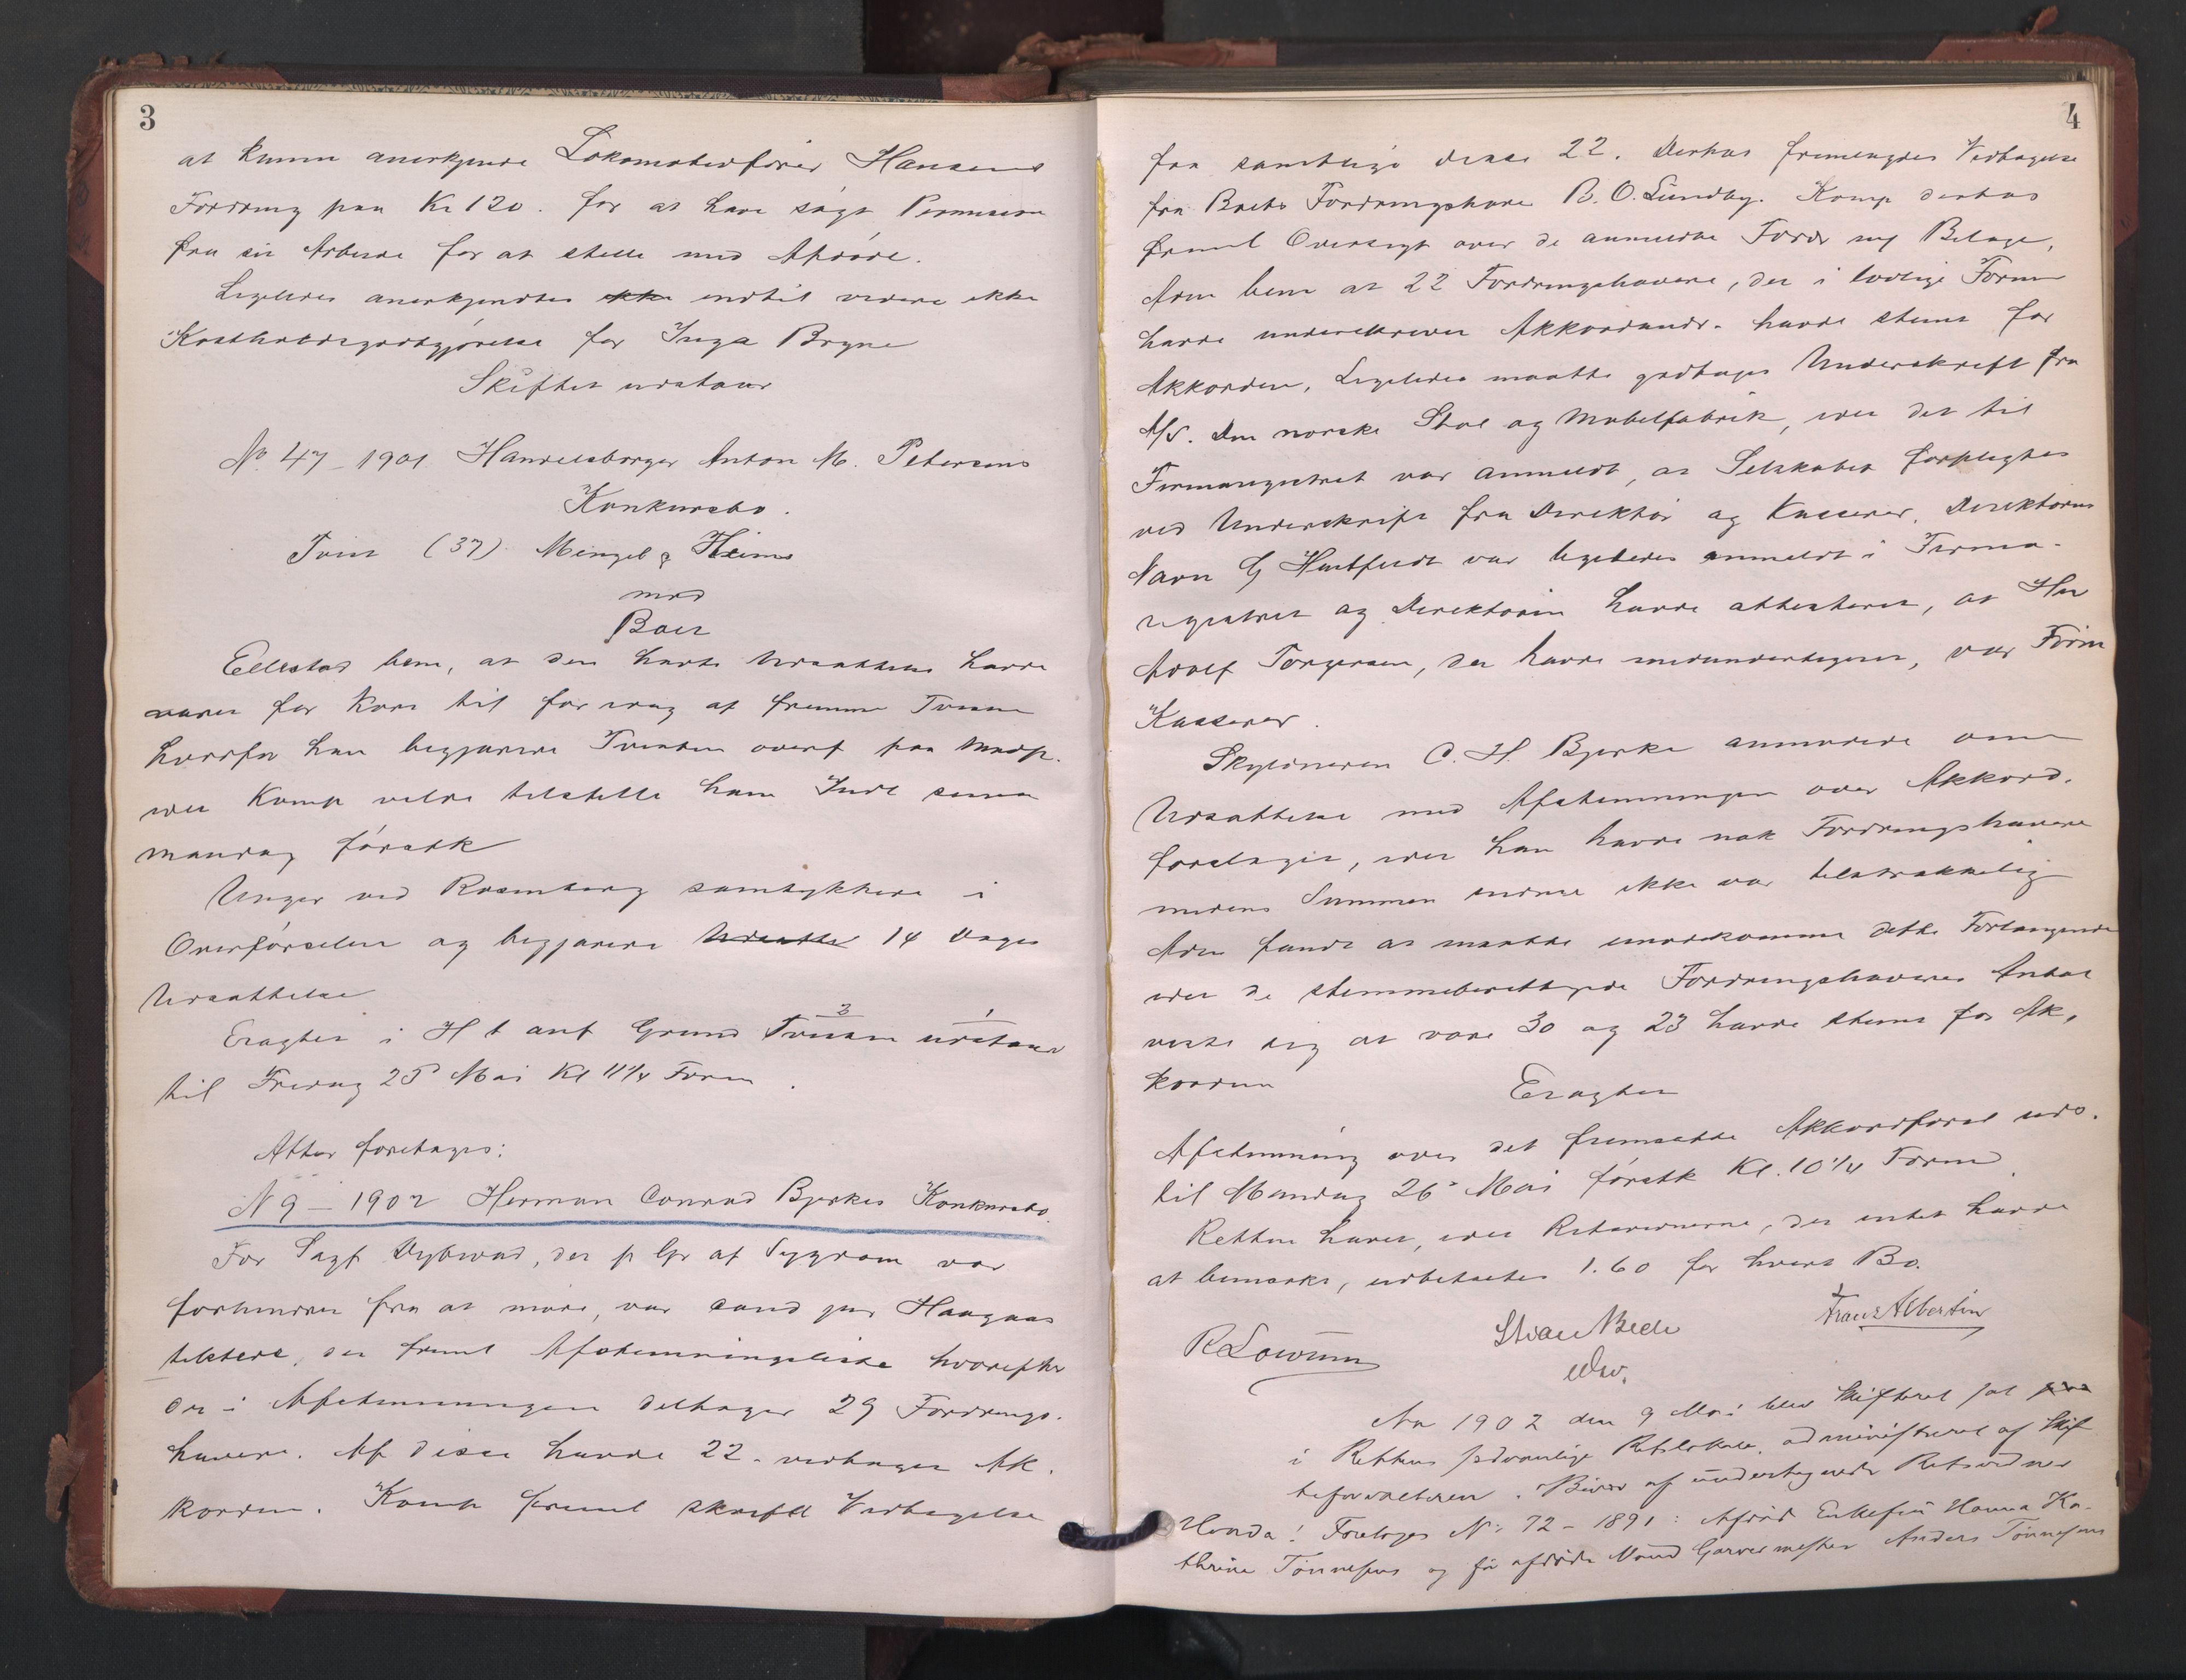 3
at kunne anerkjende Lokomotivfører Hansens
Fordring paa Kr 120. for at have søgt Permission
fra sit Arbeide for at stelle med Afdøde.
Ligeledes anerkjendtes ikke indtil videre ikke
Kostholdsgodtgjørelse for Inga Bryne
Skiftet udstaar
No 47 - 1901 Handelsborger Anton M. Petersens
Konkursbo.
Tvist (37) Mengel & Heims
mod
Boet
Ellestad bem, at den havte Udsættelse havde
været for kort til for idag at fremme Tvisten
hvorfor han begjærede Tvisten overf paa
idet Komp vilde tilstille ham Indl senest
mandag førstk
Unger ved Rosenberg samtykkede i
Overførselen og begjærede Udsætte 14 Dages
Udsættelse
Eragtet i H t anf Grund Tvisten udstaar
3 1
til Fredag 23 Mai Kl 11 1/4 Form.
Atter foretages:
N 9 - 1902 Herman Conrad Bjerkes Konkursbo.
For Sagf Dybwad, der p Gr af Sygdom var
forhindret fra at møde, var cand jur Haagaas
tilstede, der freml Afstemningsliste hvorefter
der i Afstemningen deltager 29 Fordrings-
havere. Af disse havde 22 - vedtaget Ak-
korden. Komp freml skriftl Vedtagelse
4
fra samtlige disse 22. Derhos fremlagdes Vedtagelse
fra Boets Fordringshaver B. O. Sundby. Komp derhos
freml Oversigt over de anmeldte Fordr og Bilage.
Adm bem at 22 Fordringshavere, der i lovlige Former
havde underskrevet Akkordandr. havde stemt for
Akkorden. Ligeledes maatte godtages Underskrift fra
A/S. Den norske Stol og Møbelfabrik, idet det til
Firmaregistret var anmeldt, at Selskabet forpligtes
ved Underskrift fra Direktør og Kasserer. Direktørens
Navn G Hartfeldt var ligeledes anmeldt i Firma-
registret og Direktøren havde attesteret, at Her
Adolf Torgersen, der havde medundertegnet, var Firm
Kasserer.
Skyldneren C. H. Bjerke anmodede om
Udsættelse med Afstemningen over Akkord-
forslaget, idet han havde nok Fordringshavere
medens Summen endnu ikke var tilstrækkelig
Adm fandt at maatte imødekomme dette Forlangende
idet de stemmeberettigede Fordringshaveres Antal
viste sig at være 30 og 23 havde stemt for Ak-
korden
Eragtet
Afstemning over det fremsatte Akkordforsl uds.
til Mandag 26 Mai førstk Kl. 10 1/4 Form
Retten hævet, idet Retsvidnerne, der intet havde
at bemærke, udbetaltes 1.60 for hvert Bo.
Franz Albertin
Aar 1902 den 9 Mai blev Skifteret sat paa
i Rettens sædvanlige Retslokale, administreret af Skif
teforvalteren. Bivær af undertegnede Retsvidner
Hvorda! Foretoges No 72 - 1891: Afdød Enkefru Hanna Ka-
thrine Tønnesens og før afdøde Mand Garvermester Anders Tønnesens